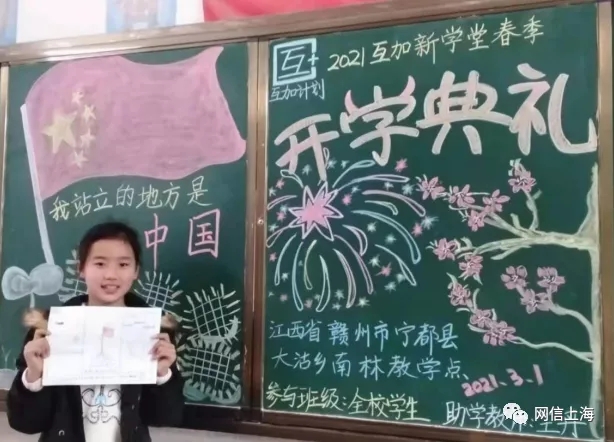 我站立的地方是
中国
互+
互加计划
2021互加新学堂春季
开学典礼
江西省赣州市宁都县
大沽乡南林教学点
2021.3.1
参与班级:全校学生
助学教
网信上海